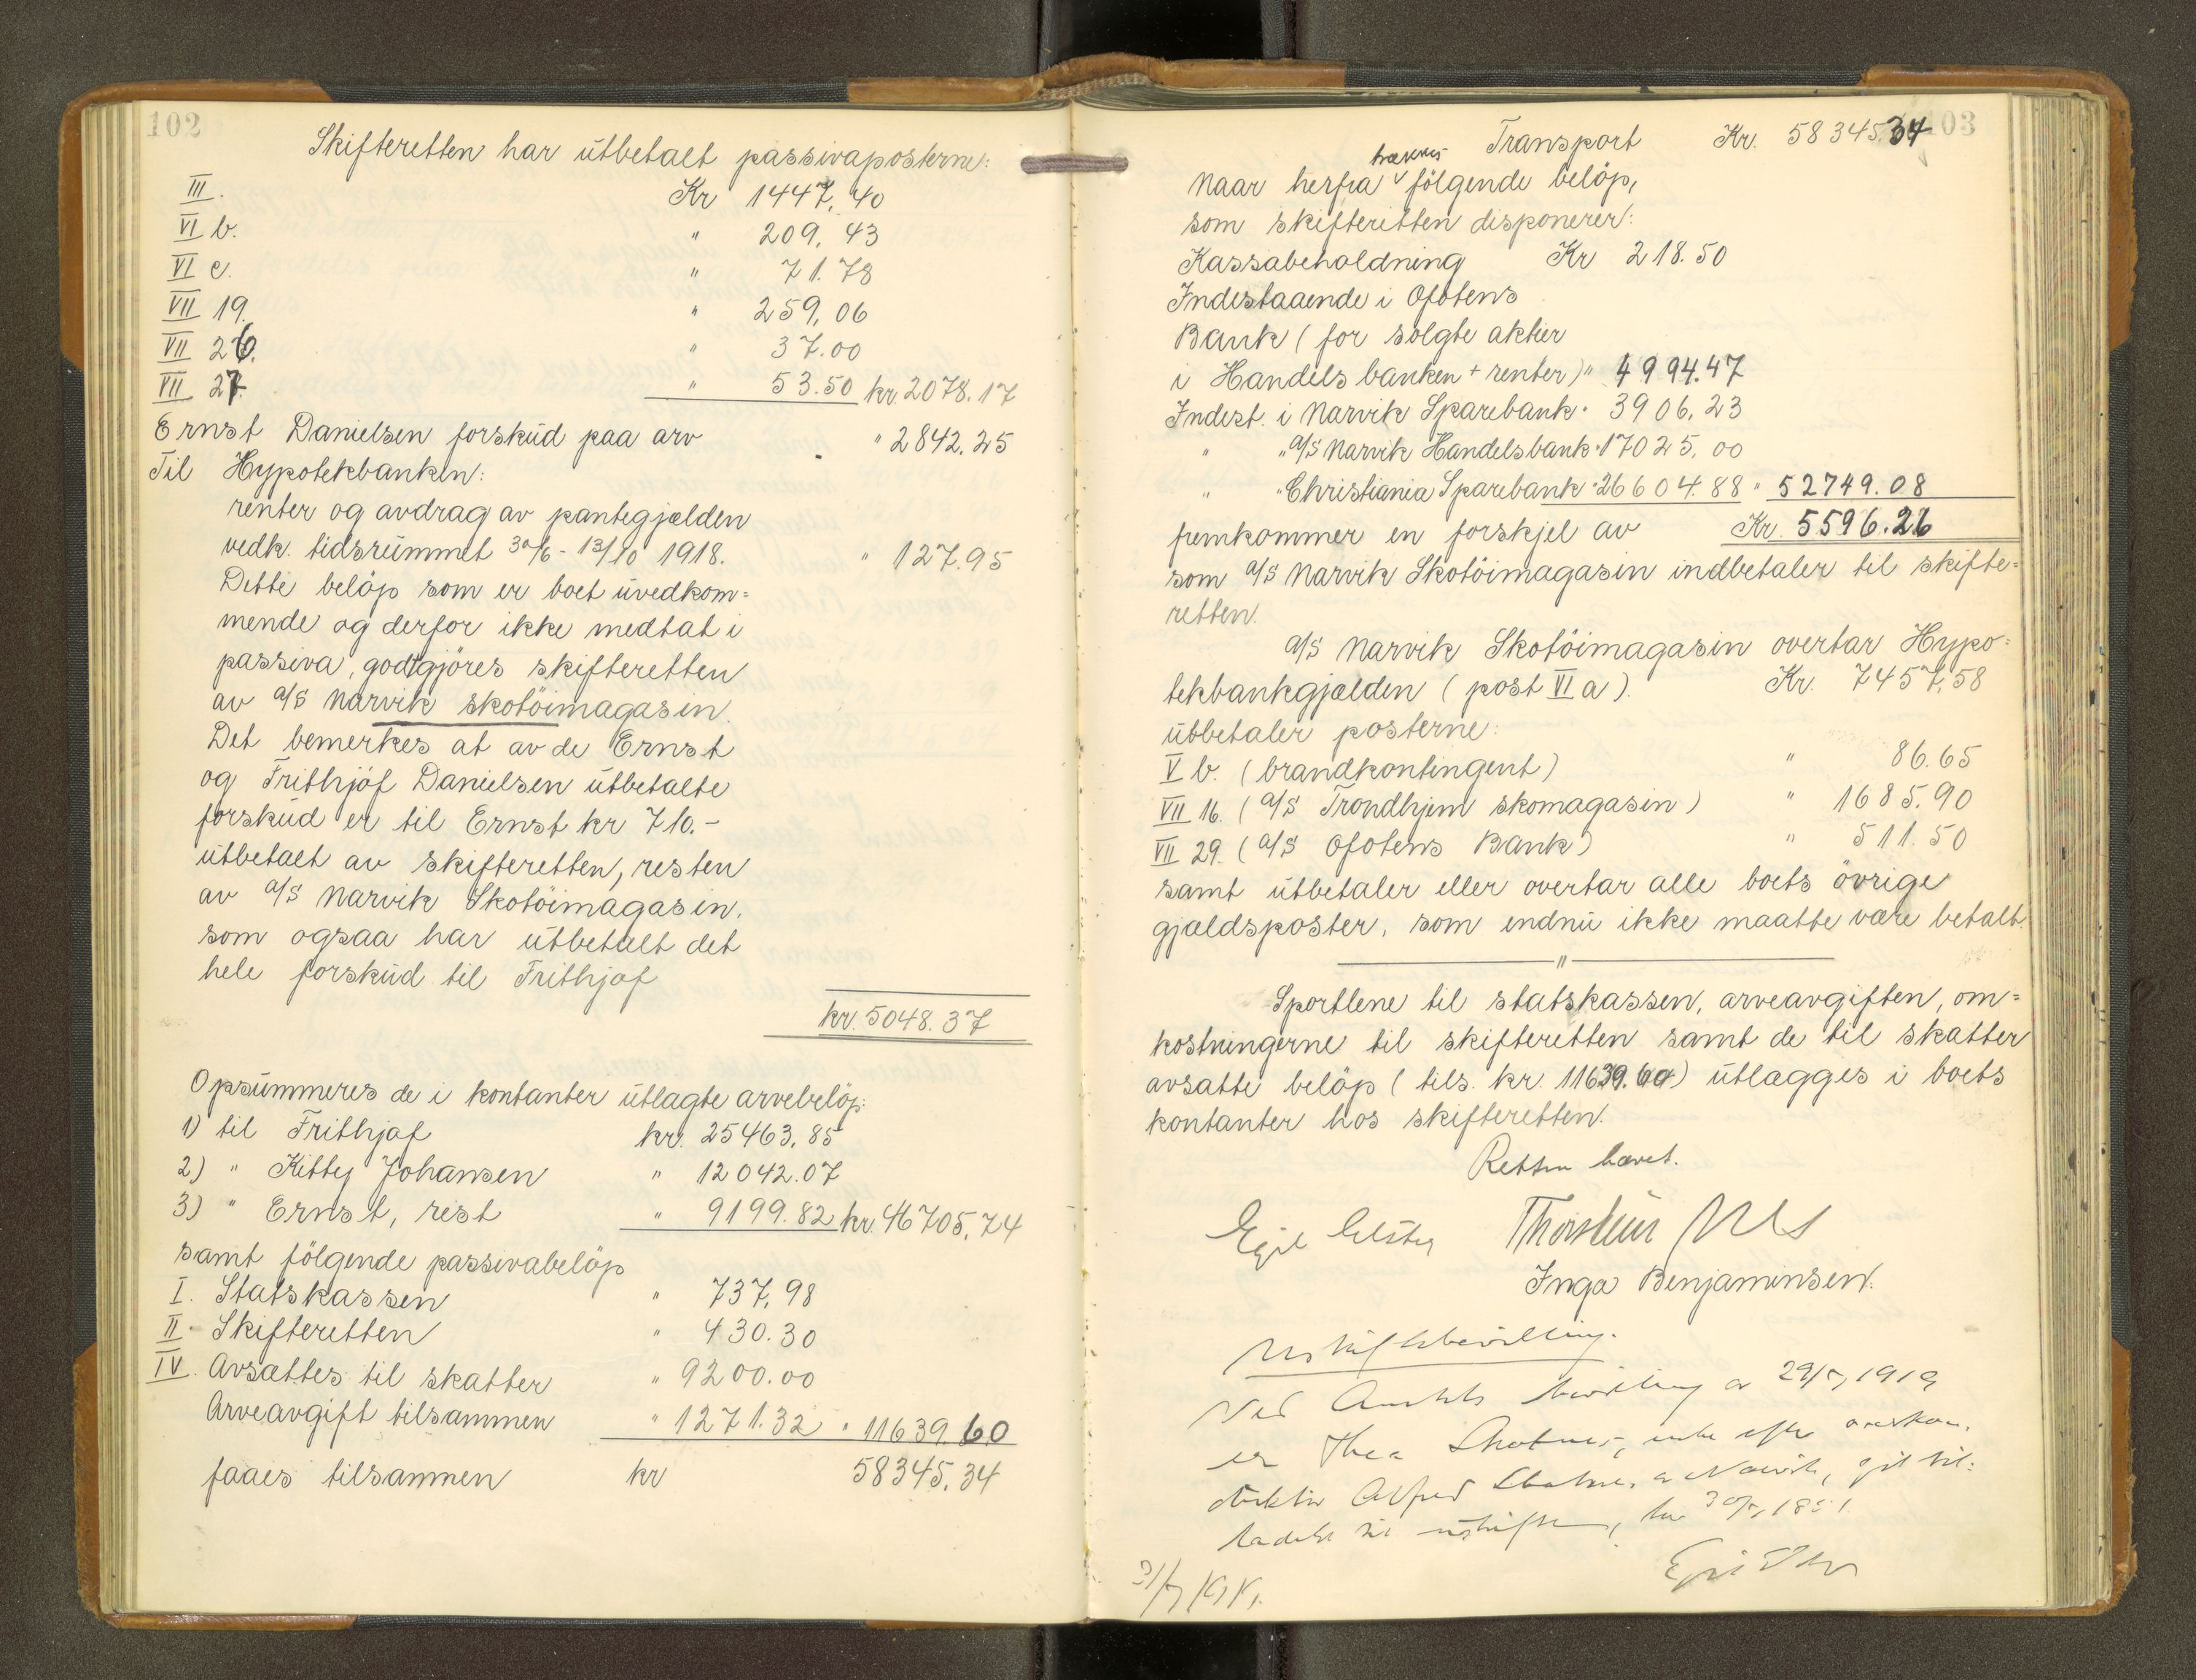 102
Skifteretten har utbetalt passivaposterne:
III. Kr 1447,40
VI b. " 209,43
VI c. " 71.78
VII 19. " 259,06
VII 26. " 37.00
VII 27. " 53.50 kr. 2078.17
Ernst Danielsen forskud paa arv " 2842.25
Til Hypotekbanken:
renter og avdrag av pantegjælden
vedk. tidsrummet 30/6 - 13/10 1918. " 127.95
Dette beløp som er boet uvedkom=
mende og derfor ikke medtat i
passiva, godtgjöres skifteretten
av a/s Narvik skotöimagasin.
Det bemerkes at av de Ernst
og Frithjof Danielsen utbetalte
forskud er til Ernst kr 710.-
utbetalt av skifteretten, resten
av a/s Narvik Skotöimagasin,
som ogsaa har utbetalt det
hele forskud til Frithjof
kr. 5048.37
Opsummeres de i kontanter utlagte arvebelöp:
1) til Frithjof kr. 25463,85
2) " Kitty Johansen " 12042.07
3) " Ernst, rest " 9199.82 kr. 46705,74
samt fölgende passivabelöp
I. Statskassen " 737,98
II. Skifteretten " 430.30
IV. Avsættes til skatter " 9200.00
Arveavgift tilsammen " 1271.32 " 11639.60
faaes tilsammen kr 58345,34
103
Transport Kr. 58345.34
trækkes
Naar herfra v fölgende belöp,
som skifteretten disponerer:
Kassabeholdning Kr 218.50
Indestaaende i Ofotens
Bank (for solgte aktier
i Handelsbanken + renter) " 4994.47
Indest. i Narvik Sparebank " 3906,23
" " a/s Narvik Handelsbank " 17025,00
" " Christiania Sparebank " 26604.88 " 52749.08
fremkommer en forskjel av Kr. 5596.26
som a/s Narvik Skotöimagasin indbetaler til skifte=
retten.
a/s Narvik Skotöimagasin overtar Hypo=
tekbankgjælden (post VI a). Kr. 7457,58
utbetaler posterne:
V b. (brandkontingent) " 86.65
VII 16. (a/s Trondhjem skomagasin) " 1685.90
VII 29. (a/s Ofotens Bank) " 511.50
samt utbetaler eller overtar alle boets övrige
gjældsposter, som endnu ikke maatte være betalt.
"
Sportlene til statskassen, arveavgiften, om=
kostningerne til skifteretten samt de til skatter
avsatte belöp (tils. kr. 11639.60) utlægges i boets
kontanter hos skifteretten.
Retten hævet.
Thorstein
Inga Benjaminsen.
Uskiftebevilling.
Ved Amtets bevilling av 29/7 1919
er Thea enke efter
Alfred av Narvik, git til=
ladelse til